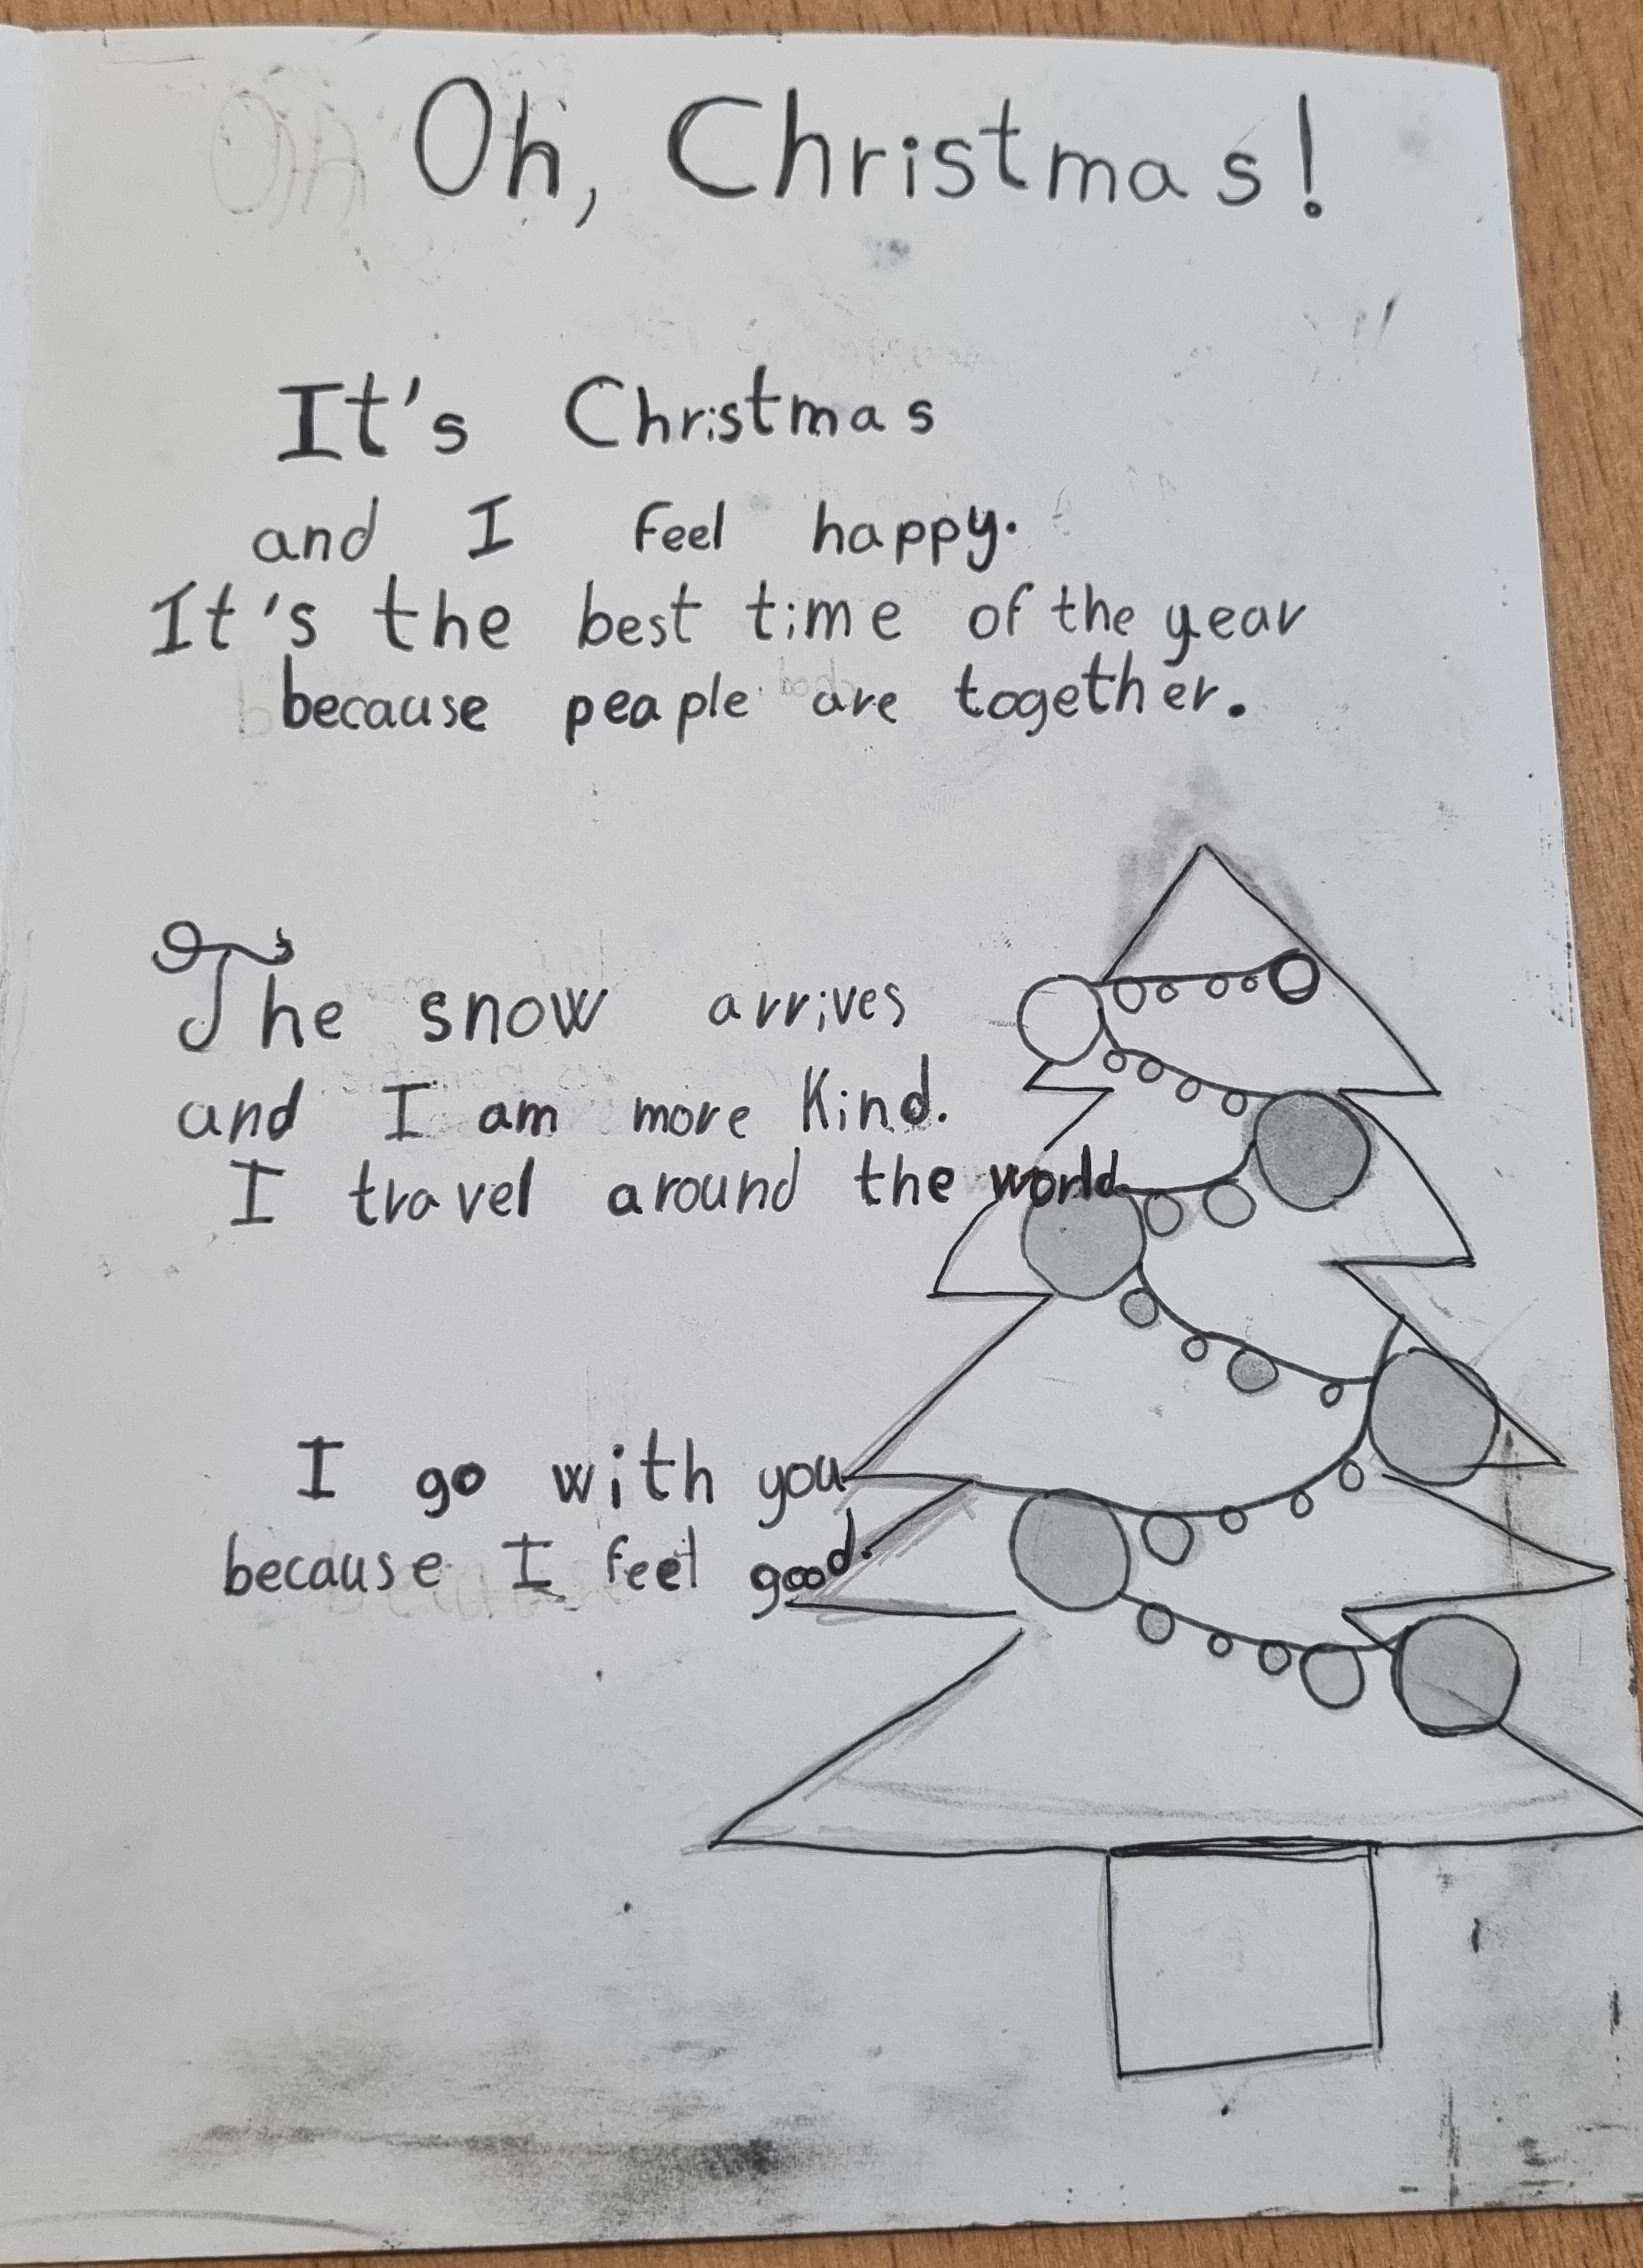 Oh, Christmas!
It's Christmas
and I feel happy.
It's the best time of the year
because peaple are together.
The snow arrives
and I am more kind.
I travel around the world
I go with you
because I feel good.